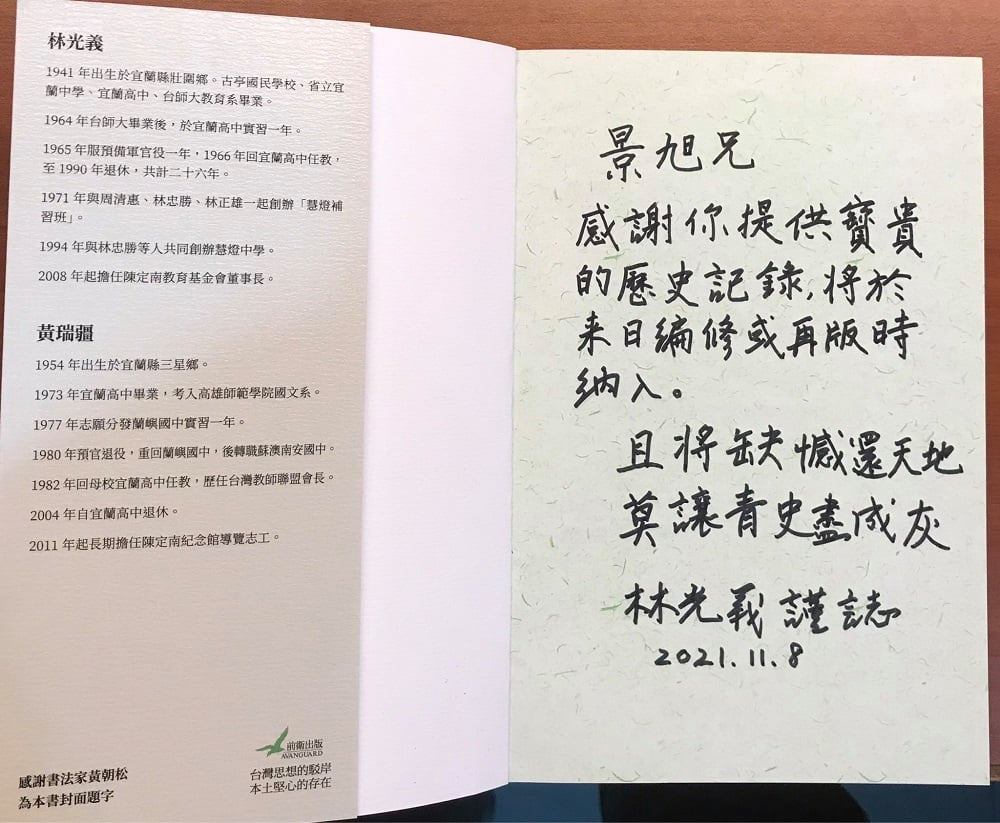 林光義
1941 年出生於宜蘭縣壯圍鄉。古亭國民學校、省立宜
蘭中學、宜蘭高中、台師大教育系畢業。
1964 年台師大畢業後，於宜蘭高中實習一年。
1965 年服預備軍官役一年，1966 年回宜蘭高中任教，
至 1990 年退休，共計二十六年。
1971 年與周清惠、林忠勝、林正雄一起創辦「慧燈補
習班」。
1994 年與林忠勝等人共同創辦慧燈中學。
2008 年起擔任陳定南教育基金會董事長。
黃瑞疆
1954 年出生於宜蘭縣三星鄉。
1973 年宜蘭高中畢業，考入高雄師範學院國文系。
1977 年志願分發蘭嶼國中實習一年。
1980 年預官退役，重回蘭嶼國中，後轉職蘇澳南安國中。
1982 年回母校宜蘭高中任教，歷任台灣教師聯盟會長。
2004 年自宜蘭高中退休。
2011 年起長期擔任陳定南紀念館導覽志工。
感謝書法家黃朝松
為本書封面題字
前衛出版
AVANGUARD
台灣思想的駁岸
本土堅心的存在
景旭兄
感謝你提供寶貴
的歷史記錄,將於
来日編修或再版時
納入。
且將缺憾還天地
莫讓青史盡成灰
林光義謹誌
2021.11.8